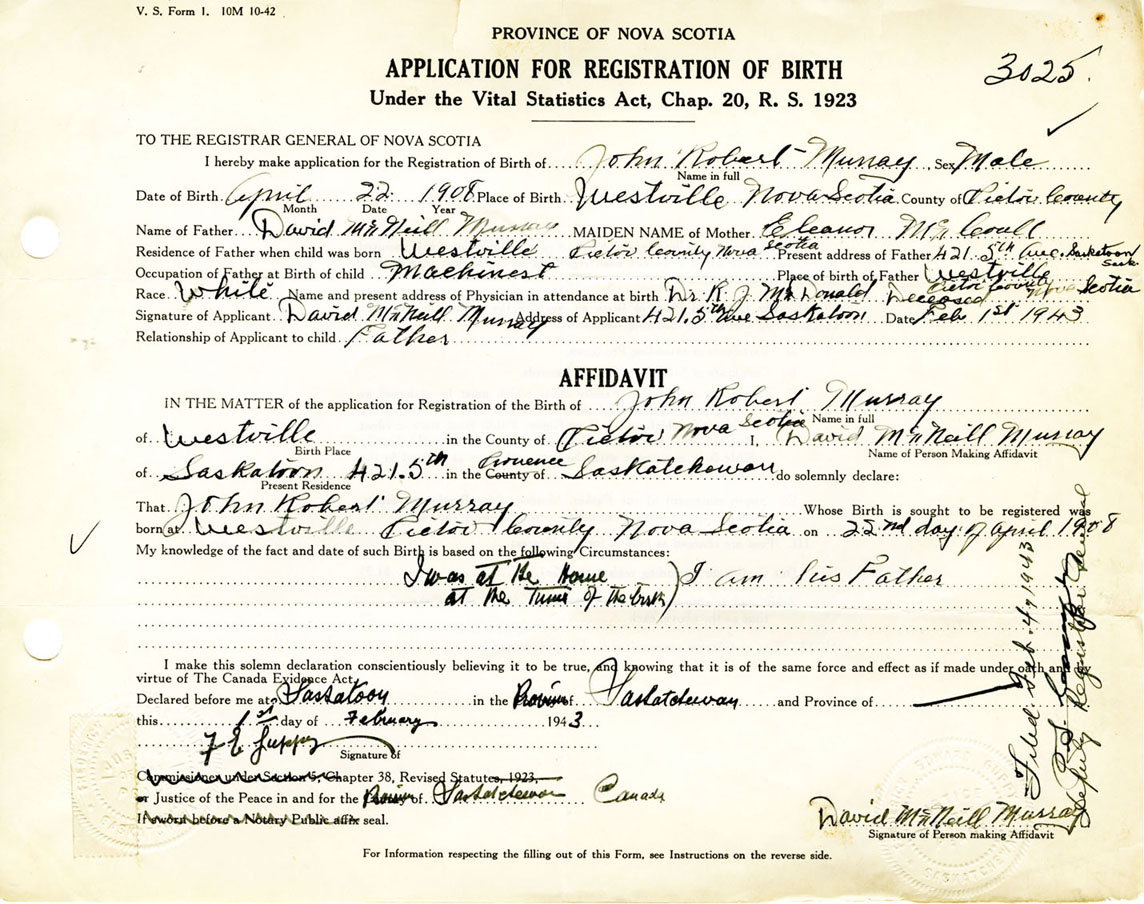 V. S. Form 1. 10M 10-42
PROVINCE OF NOVA SCOTIA
APPLICATION FOR REGISTRATION OF BIRTH
3025.
Under the Vital Statistics Act, Chap. 20, R. S. 1923
TO THE REGISTRAR GENERAL OF NOVA SCOTIA
I hereby make application for the Registration of Birth of John Robert Murray Sex Male
Name in full
Date of Birth April 22 1908 Place of Birth Westville Nova Scotia County of Pictov County
Month Date Year
Name of Father David McNeill Murray MAIDEN NAME of Mother Eleanor McCoull
Residence of Father when child was born Westville Pictov County Nova Scotia Present address of Father 421. 5th Ave. Saskatoon Sask
Occupation of Father at Birth of child Machinest Place of birth of Father Westville
Pictov County Nova Scotia
Race White Name and present address of Physician in attendance at birth Dr. R. J. McDonald Deceased
Signature of Applicant David McNeill Murray Address of Applicant 421.5th Ave Saskatoon Date Feb 1st 1943
Relationship of Applicant to child Father
AFFIDAVIT
IN THE MATTER of the application for Registration of the Birth of John Robert Murray
Name in full
of Westville in the County of Pictov Nova Scotia I, David McNeill Murray
Birth Place Name of Person Making Affidavit
of Saskatoon 421.5th in the County of Provence Saskatchewan do solemnly declare:
Present Residence
That John Robert Murray Whose Birth is sought to be registered was
born at Westville Pictov County Nova Scotia on 22nd day of april 1908
My knowledge of the fact and date of such Birth is based on the following Circumstances:
I was at the home ) I am his Father
at the time of the birth)
I make this solemn declaration conscientiously believing it to be true, and knowing that it is of the same force and effect as if made under oath and by
virtue of The Canada Evidence Act.
Declared before me at Saskatoon in the Province of Saskatchewan and Province of
this 1st day of February 1943
Signature of
Commissioner under Section 5, Chapter 38, Revised Statutes, 1923,
or Justice of the Peace in and for the Province of Saskatchewan Canada
If sworn before a Notary Public affix seal.
David McNeill Murray
Signature of Person making Affidavit
For Information respecting the filling out of this Form, see Instructions on the reverse side.
Filed Feb. 4, 1943
Deputy Registrar General